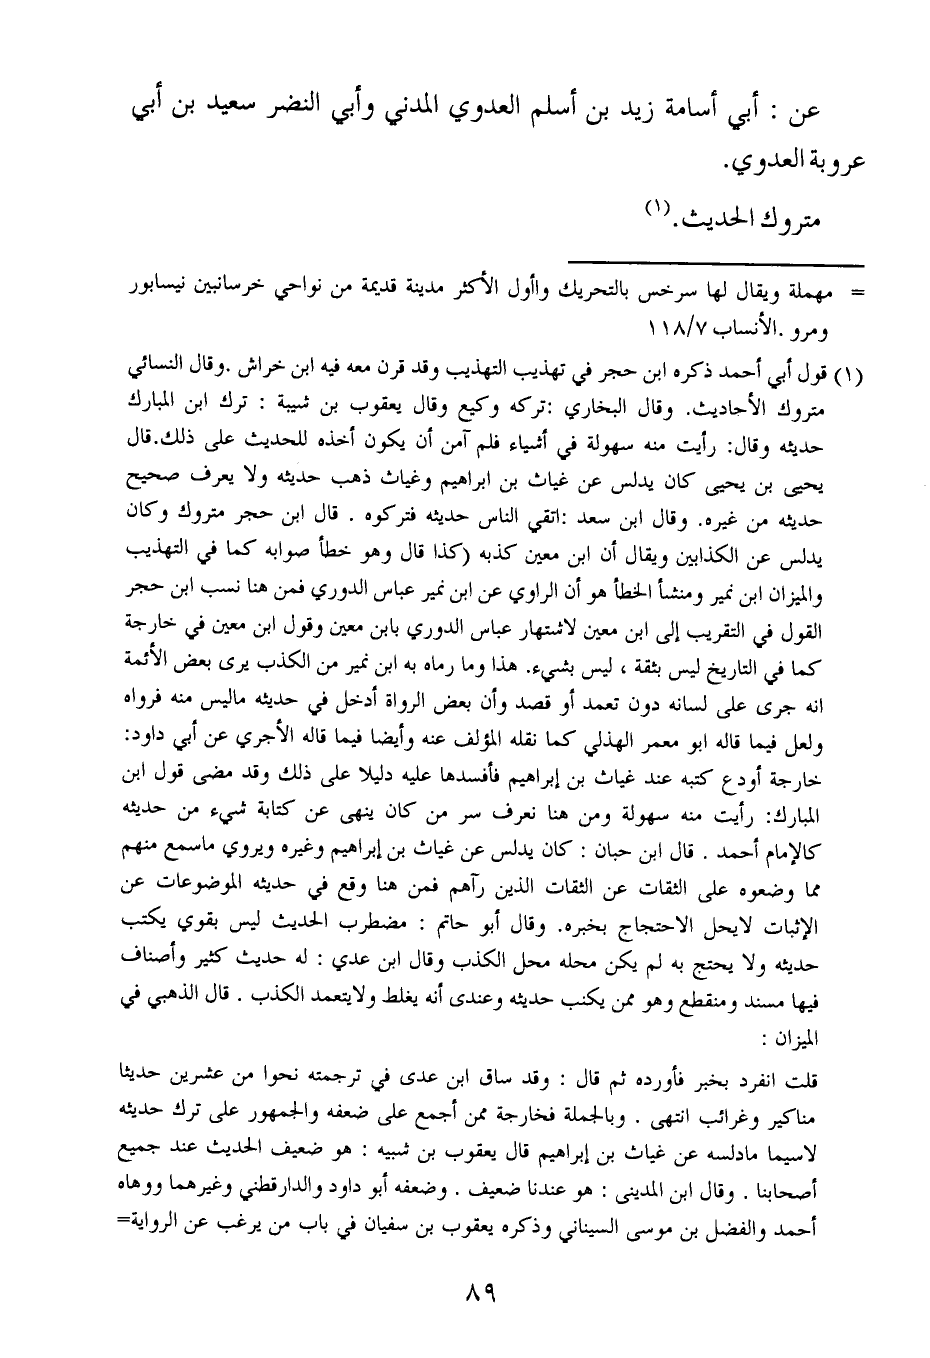 عن : أبي أسامة زيد بن أسلم العدوي المدني وأبي النضر سعيد بن أبي
عروبة العدوي.
متروك الحديث.(١)
= مهملة ويقال لها سرخس بالتحريك واأول الأكثر مدينة قديمة من نواحي خرسانبين نيسابور
ومرو .الأنساب ١١٨/٧
(١) قول أبي أحمد ذكره ابن حجر في تهذيب التهذيب وقد قرن معه فيه ابن خراش .وقال النسائي
متروك الأحاديث. وقال البخاري :تركه وكيع وقال يعقوب بن شيبة : ترك ابن المبارك
حديثه وقال: رأيت منه سهولة في أشياء فلم آمن أن يكون أخذه للحديث على ذلك.قال
يحيى بن يحيى كان يدلس عن غياث بن ابراهيم وغياث ذهب حديثه ولا يعرف صحيح
حديثه من غيره. وقال ابن سعد :اتقي الناس حديثه فتركوه . قال ابن حجر متروك وكان
يدلس عن الكذابين ويقال أن ابن معين كذبه (كذا قال وهو خطأ صوابه كما في التهذيب
والميزان ابن نمير ومنشأ الخطأ هو أن الراوي عن ابن نمير عباس الدوري فمن هنا نسب ابن حجر
القول في التقريب إلى ابن معين لاشتهار عباس الدوري بابن معين وقول ابن معين في خارجة
كما في التاريخ ليس بثقة ، ليس بشيء. هذا وما رماه به ابن نمير من الكذب يرى بعض الأئمة
انه جرى على لسانه دون تعمد أو قصد وأن بعض الرواة أدخل في حديثه ماليس منه فرواه
ولعل فيما قاله ابو معمر الهذلي كما نقله المؤلف عنه وأيضا فيما قاله الأجري عن أبي داود:
خارجة أودع كتبه عند غياث بن إبراهيم فأفسدها عليه دليلا على ذلك وقد مضى قول ابن
المبارك: رأيت منه سهولة ومن هنا نعرف سر من كان ينهى عن كتابة شيء من حديثه
كالإمام أحمد . قال ابن حبان : كان يدلس عن غياث بن إبراهيم وغيره ويروي ماسمع منهم
مما وضعوه على الثقات عن الثقات الذين رآهم فمن هنا وقع في حديثه الموضوعات عن
الإثبات لايحل الاحتجاج بخبره. وقال أبو حاتم : مضطرب الحديث ليس بقوي يكتب
حديثه ولا يحتج به لم يكن محله محل الكذب وقال ابن عدي : له حديث كثير وأصناف
فيها مسند ومنقطع وهو ممن يكتب حديثه وعندى أنه يغلط ولايتعمد الكذب . قال الذهبي في
الميزان :
قلت انفرد بخبر فأورده ثم قال : وقد ساق ابن عدى في ترجمته نحوا من عشرين حديثا
مناكير وغرائب انتهى . وبالجملة فخارجة ممن أجمع على ضعفه والجمهور على ترك حديثه
لاسيما مادلسه عن غياث بن إبراهيم قال يعقوب بن شبيه : هو ضعيف الحديث عند جميع
أصحابنا . وقال ابن المديني : هو عندنا ضعيف . وضعفه أبو داود والدارقطني وغيرهما ووهاه
أحمد والفضل بن موسى السيناني وذكره يعقوب بن سفيان في باب من يرغب عن الرواية=
٨٩